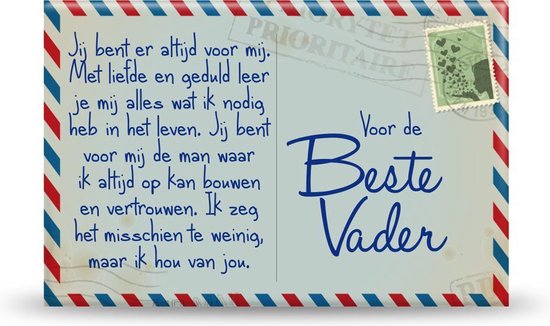 Jij bent er altijd voor mij.
Met liefde en geduld leer
je mij alles wat ik nodig
heb in het leven. Jij bent
voor mij de man waar
ik altijd op kan bouwen
en vertrouwen. Ik zeg
het misschien te weinig,
maar ik hou van jou.
PRIORITAIRE
Voor de
Beste
Vader